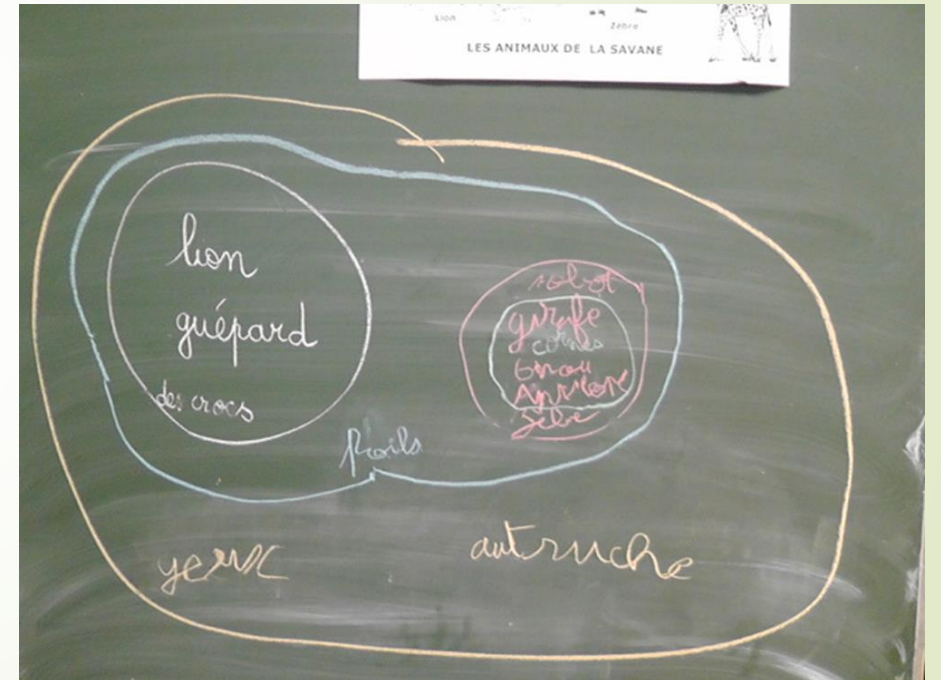 Lion
Zèbre
LES ANIMAUX DE LA SAVANE
lion
guépard
des crocs
sabot
girafe
cornes
Gnou
Antilope
zèbre
Poils
yeux
autruche